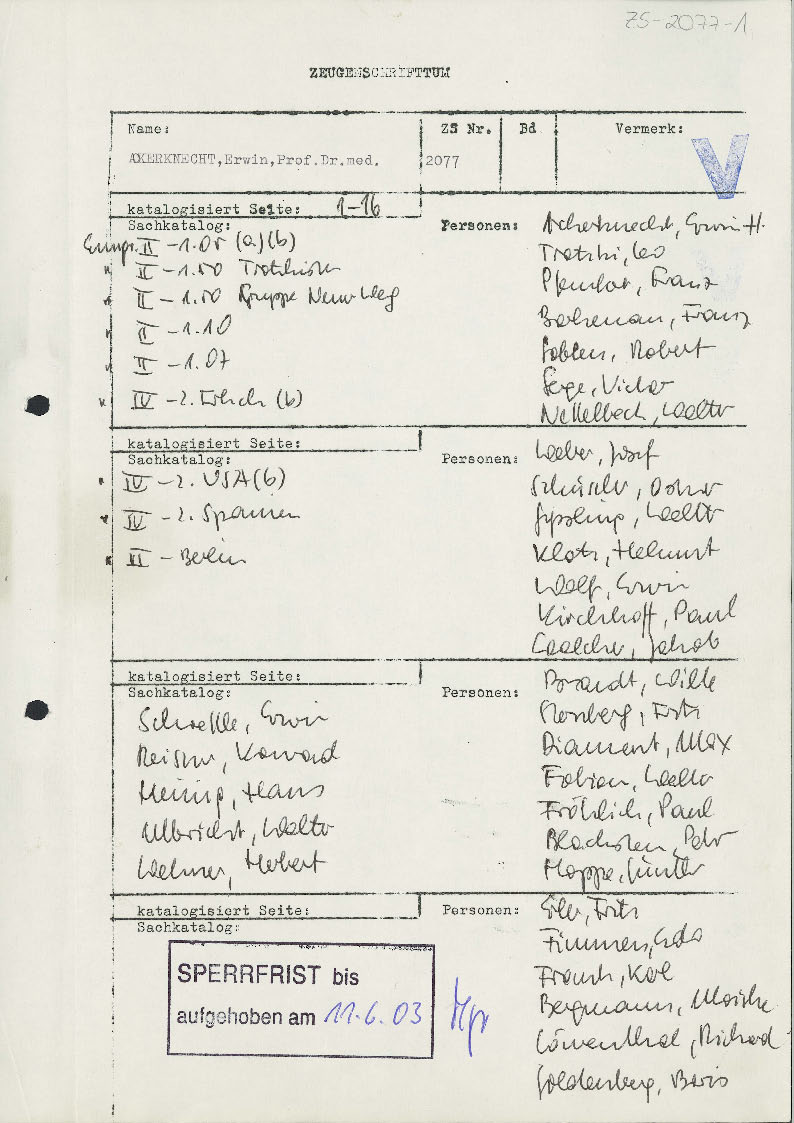 ZS-2077-1
ZEUGENSCHRIFTTUM
Name: ZS Nr. Bd Vermerk:
AKERKNECHT,Erwin,Prof.Dr.med. 2077
V
katalogisiert Seite: 1-16
Sachkatalog: Personen: Ackerknecht, Erwin H.
II -1.05 (a)(b)
Trotzki, Leo
" II -1.50 Trotzkisten
Pfemfert, Franz
" II -1.50 Gruppe Neuer Weg
Borkenau, Franz
" II -1.10
Soblen, Robert
" II -1.07
Serge, Victor
" IV -2. (b)
Nettelbeck, Walter
katalogisiert Seite:
Sachkatalog: Personen: Weber, Josef
" IV -2. USA(b)
Schüssler, Oskar
" IV -2. Spanien
Walter
" III -Berlin
Klotz, Helmut
Wolf, Erwin
Kirchhoff, Paul
Walcher, Jakob
katalogisiert Seite:
Sachkatalog: Personen: Brandt, Willi
Schoettle, Erwin
Sternberg, Fritz
Reisner, Konrad
Diamant, Max
Hans
Fabian, Walter
Ulbricht, Walter
Fröhlich, Paul
Wehner, Herbert
Blachstein, Peter
Hoppe, Günter
katalogisiert Seite: Personen: Erler, Fritz
Sachkatalog:
Fimmen, Edo
SPERRFRIST bis
Frank, Karl
aufgehoben am 11.6.03
Bergmann,
Löwenthal, Richard
Goldenberg, Boris